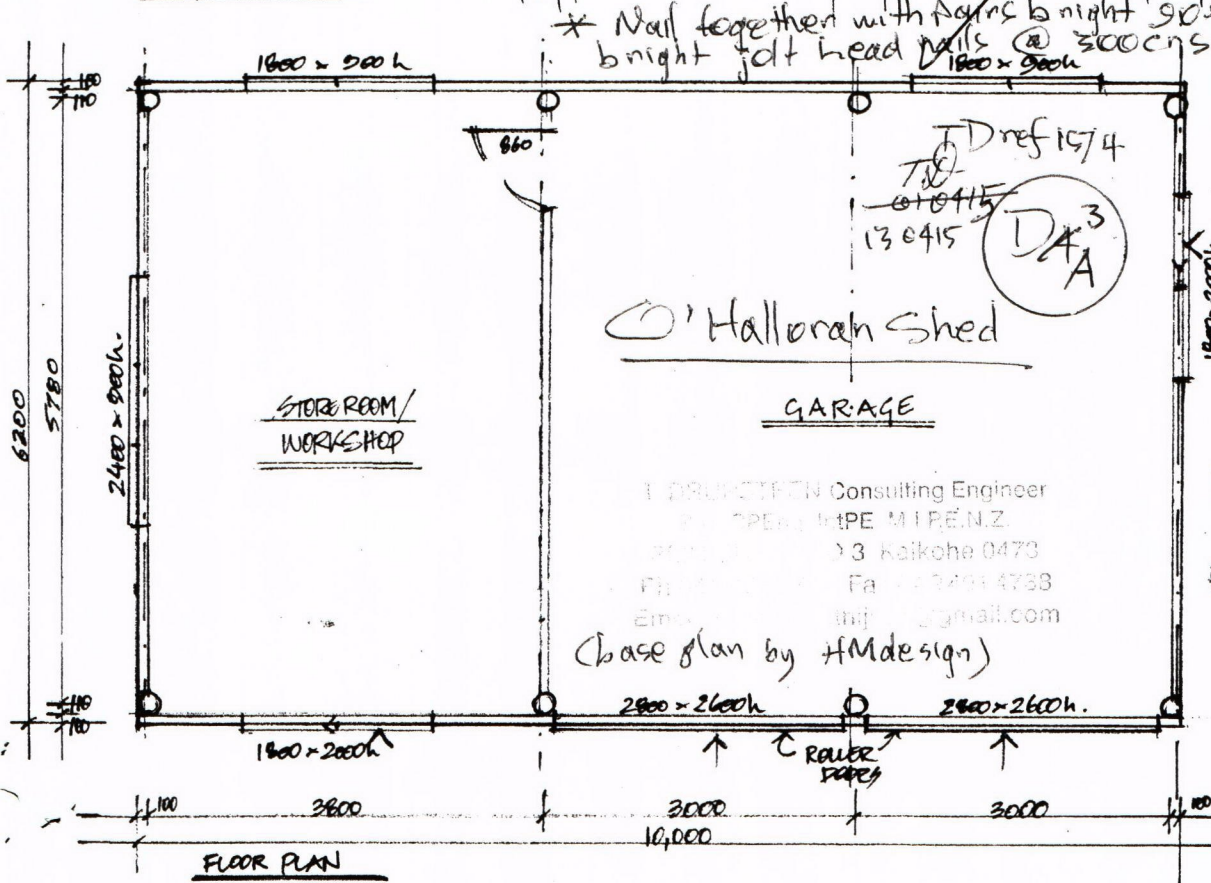 * Nail together with pairs bright 90
bright jolt head nails @ 300crs
1800 x 900h
1800 x 900h
100
110
860
TD ref 1574
TD
010415
130415
D4 3
A
O'Halloran Shed
6200
5780
2400 x 900h.
STOREROOM/
WORKSHOP
GARAGE
Consulting Engineer
IntPE M.I.P.E.N.Z.
3 Kaikohe 0473
4738
gmail.com
(base plan by HMdesign)
110
100
2800 x 2600h
2800 x 2600h.
1800 x 2000h
ROLLER
DOORS
100
3800
3000
3000
100
10,000
FLOOR PLAN